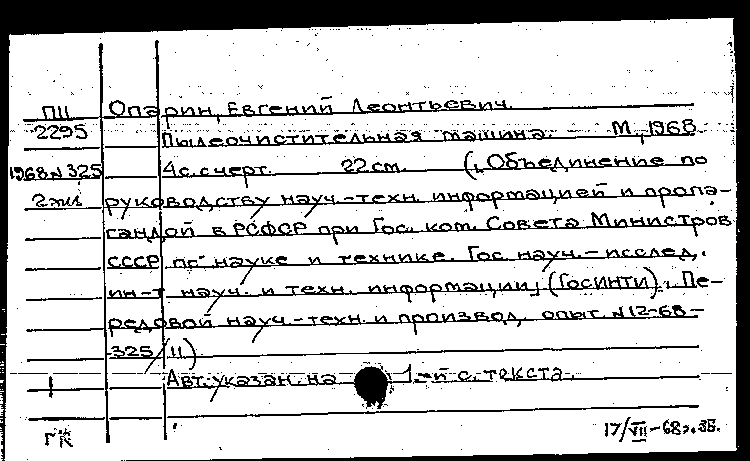 ПII Опарин, Евгений Леонтьевич.
2295 Пылеочистительная машина. – М., 1968
1968 N 325 4с. с черт. 22 см. (Объединение по
2 экз руководству науч.-техн. информацией и пропа-
гандой в РСФСР при Гос. ком. Совета Министров
СССР по науке и технике. Гос. науч.-исслед.
ин-т науч. и техн. информации, (ГОСИНТИ). Пе-
редовой науч.-техн. и производ. опыт. N 12-68-
325/11)
1 Авт. указан на 1-й с. текста.
ГК 17/VII-68г.